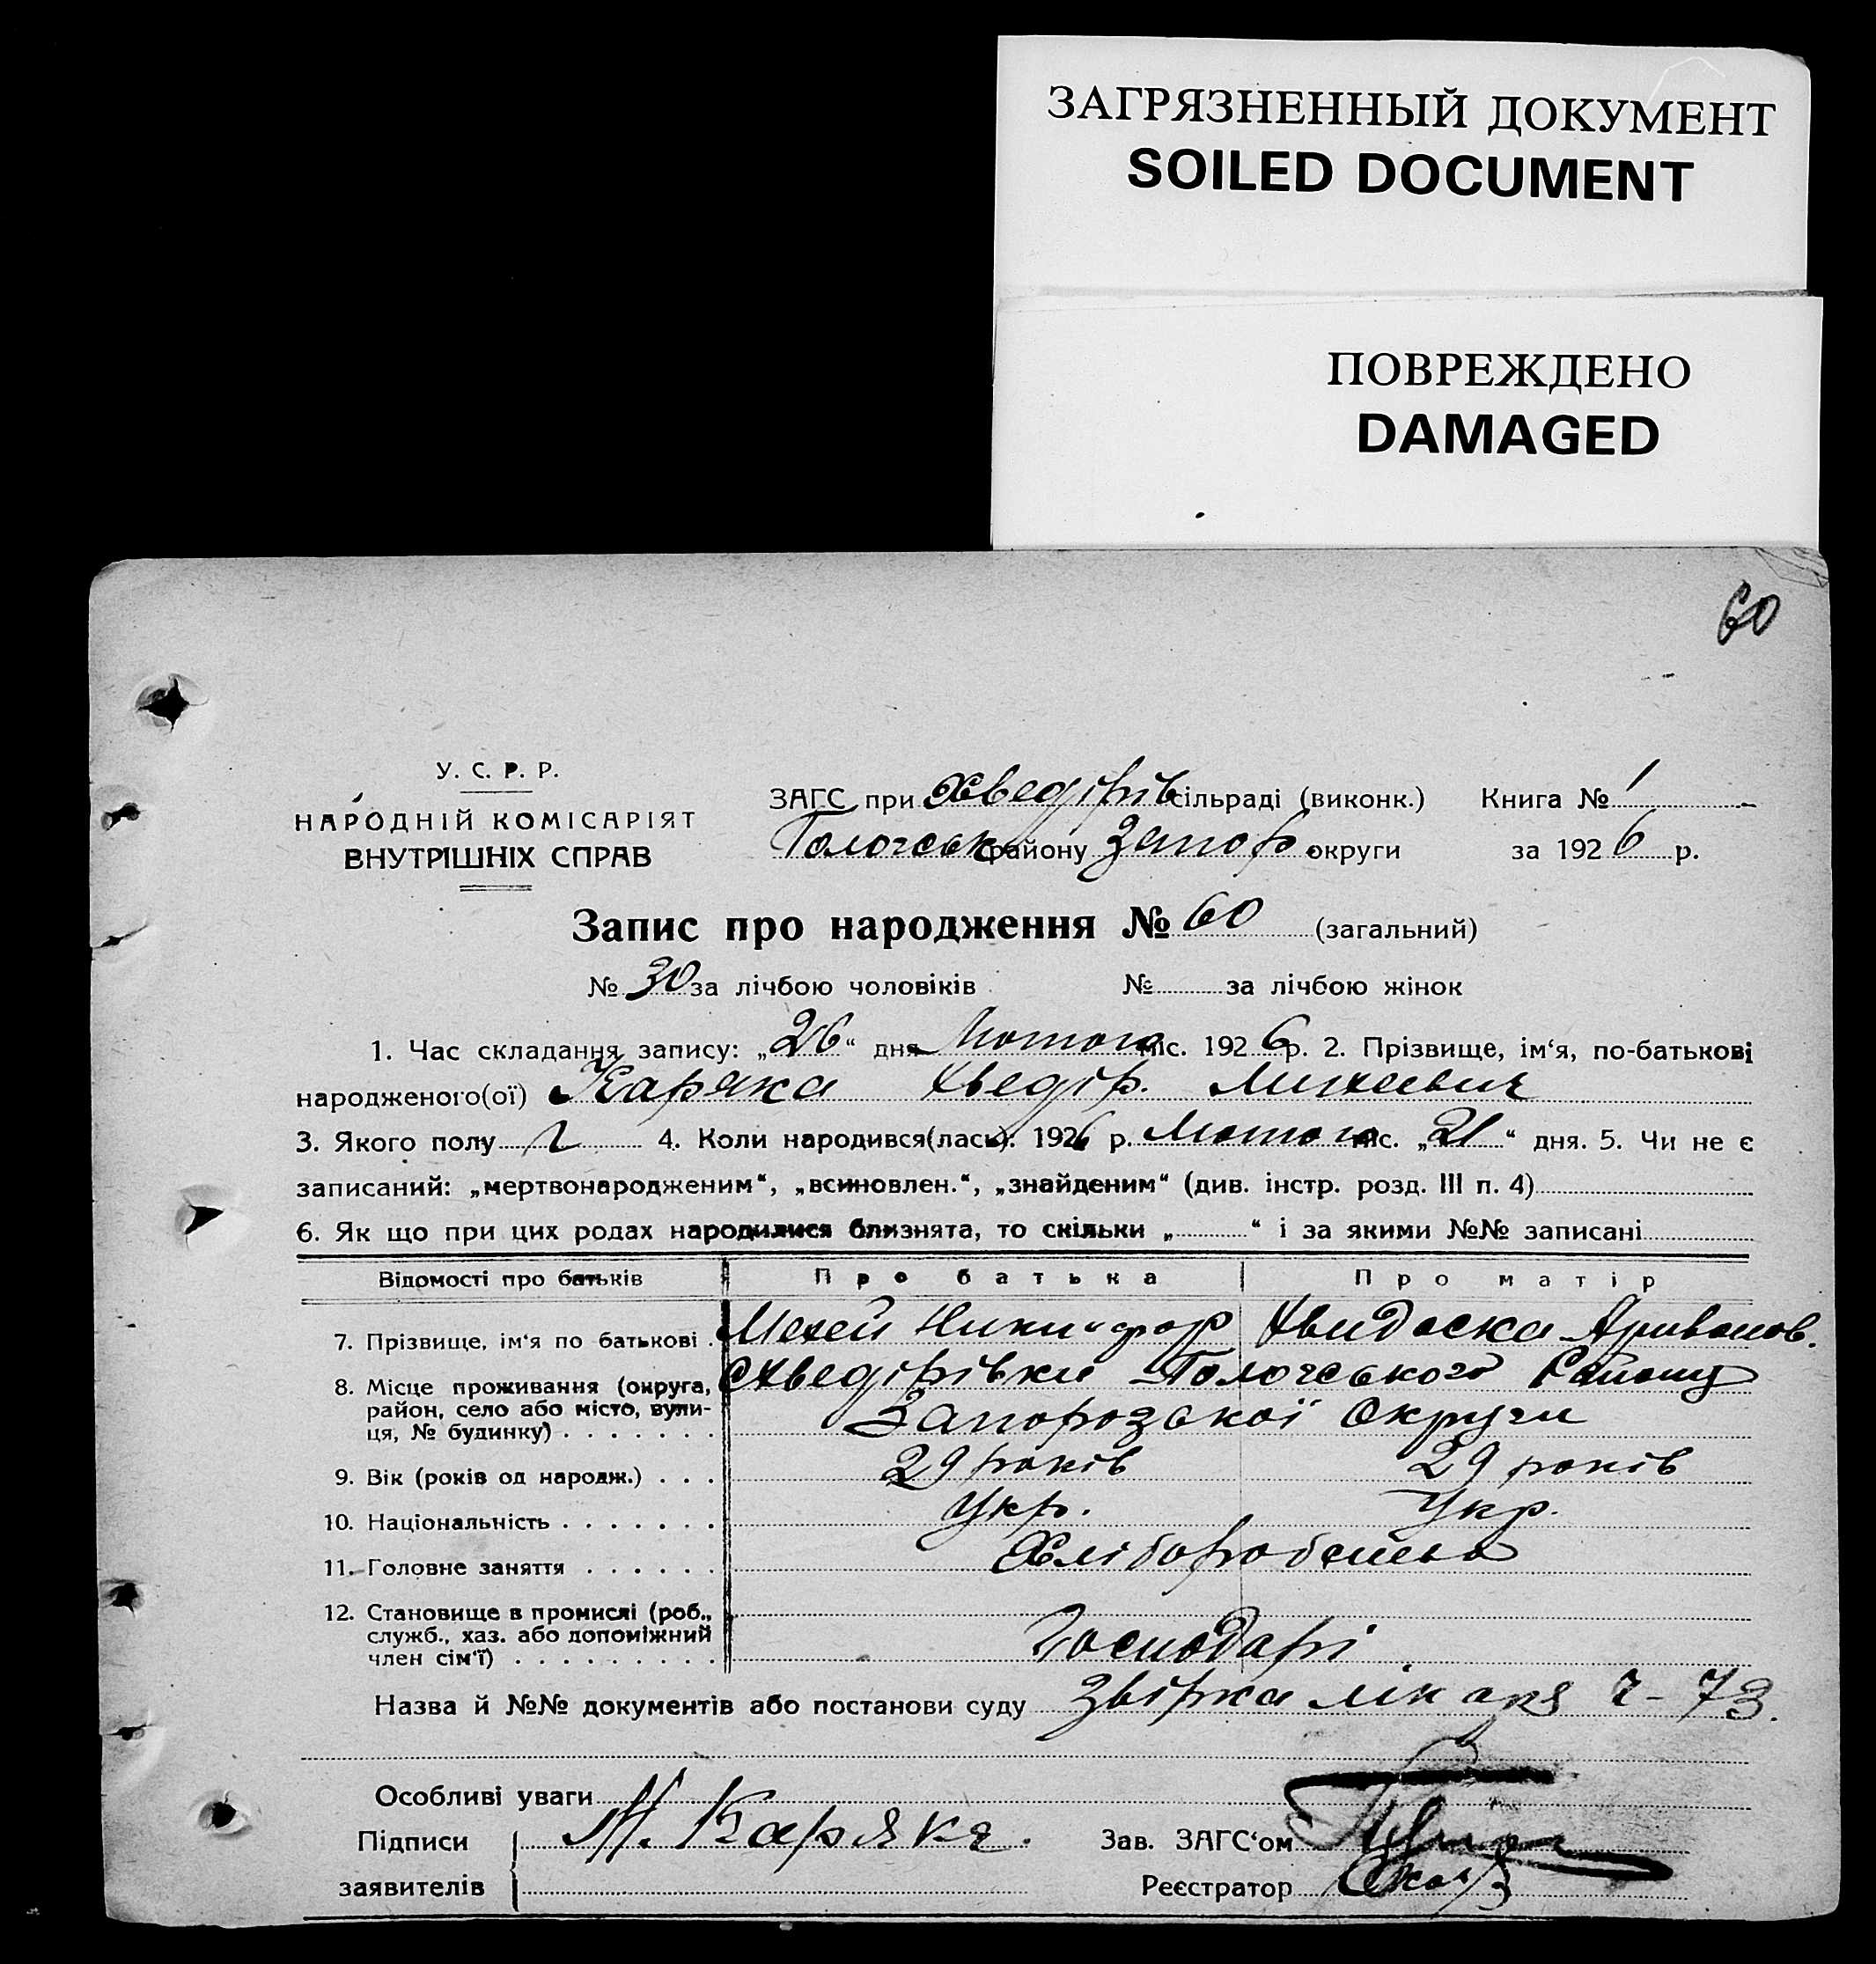 ЗАГРЯЗНЕННЫЙ ДОКУМЕНТ
SOILED DOCUMENT
ПОВРЕЖДЕНО
DAMAGED
60
У. С. Р. Р.
НАРОДНІЙ КОМІСАРІЯТ
ВНУТРІШНІХ СПРАВ
ЗАГС при Хведірів сільраді (виконк.) Книга № 1
району Запор. округи за 1926 р.
Запис про народження № 60 (загальний)
№ 30 за лічбою чоловіків № за лічбою жінок
1. Час складання запису: „26“ дня Лютого міс. 1926 р. 2. Прізвище, ім‘я, по-батькові
народженого(ої) Каряка Хведір. Михеевич
3. Якого полу ч 4. Коли народився(лась): 1926 р. Лютого міс. „21“ дня. 5. Чи не є
записаний: „мертвонародженим“, „всиновлен.“, „знайденим“ (див. інстр. розд. III п. 4)
6. Як що при цих родах народилися близнята, то скільки „ “ і за якими №№ записані
Відомості про батьків Про батька Про матір
7. Прізвище, ім‘я по батькові Михей Ники‐фор Хвидоска
8. Місце проживання (округа, Хведірівки району
район, село або місто, вули-
ця, № будинку) Запорозської Округи
9. Вік (років од народж.) 29 років 29 років
10. Національність Укр. Укр.
11. Головне заняття
12. Становище в промислі (роб.,
служб., хаз. або допоміжний
член сім‘ї) Господарі
Назва й №№ документів або постанови суду звірка лікаря ч - 73.
Особливі уваги
Підписи М. Каряка. Зав. ЗАГС‘ом
заявителів Реєстратор